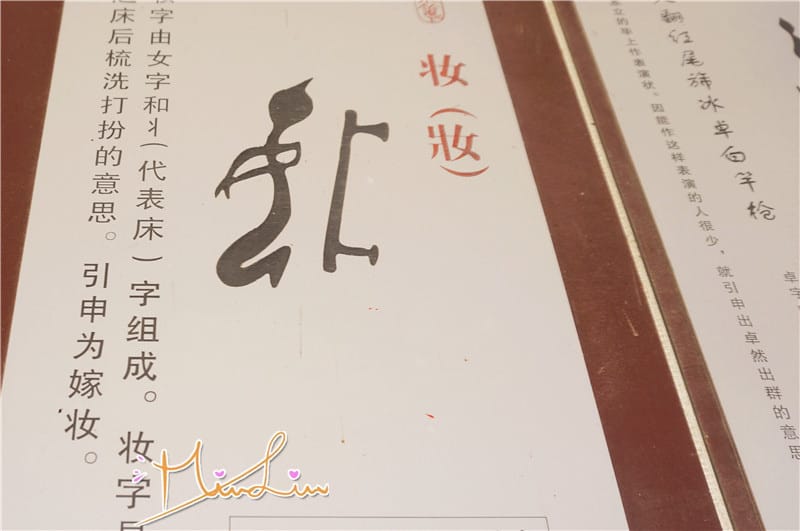 妆（妝）
字由女字和丬（代表床）字组成。妆字是
床后梳洗打扮的意思。引申为嫁妆。
翻红尾旆冰卓白竿枪
立的毕上作表演状。因能作这样表演的人很少，就引申出卓然出群的意思
卓字
MinLin